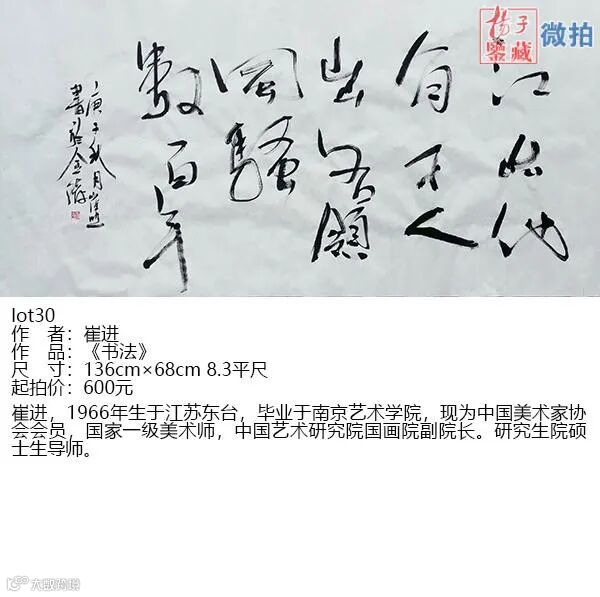 揚子
鑒藏
微拍
江山代
有才人
出各領
風騷
數百年
庚子秋月崔進
lot30
作　者：崔进
作　品：《书法》
尺　寸：136cm×68cm 8.3平尺
起拍价：600元
崔进，1966年生于江苏东台，毕业于南京艺术学院，现为中国美术家协
会会员，国家一级美术师，中国艺术研究院国画院副院长。研究生院硕
士生导师。
大数跨境